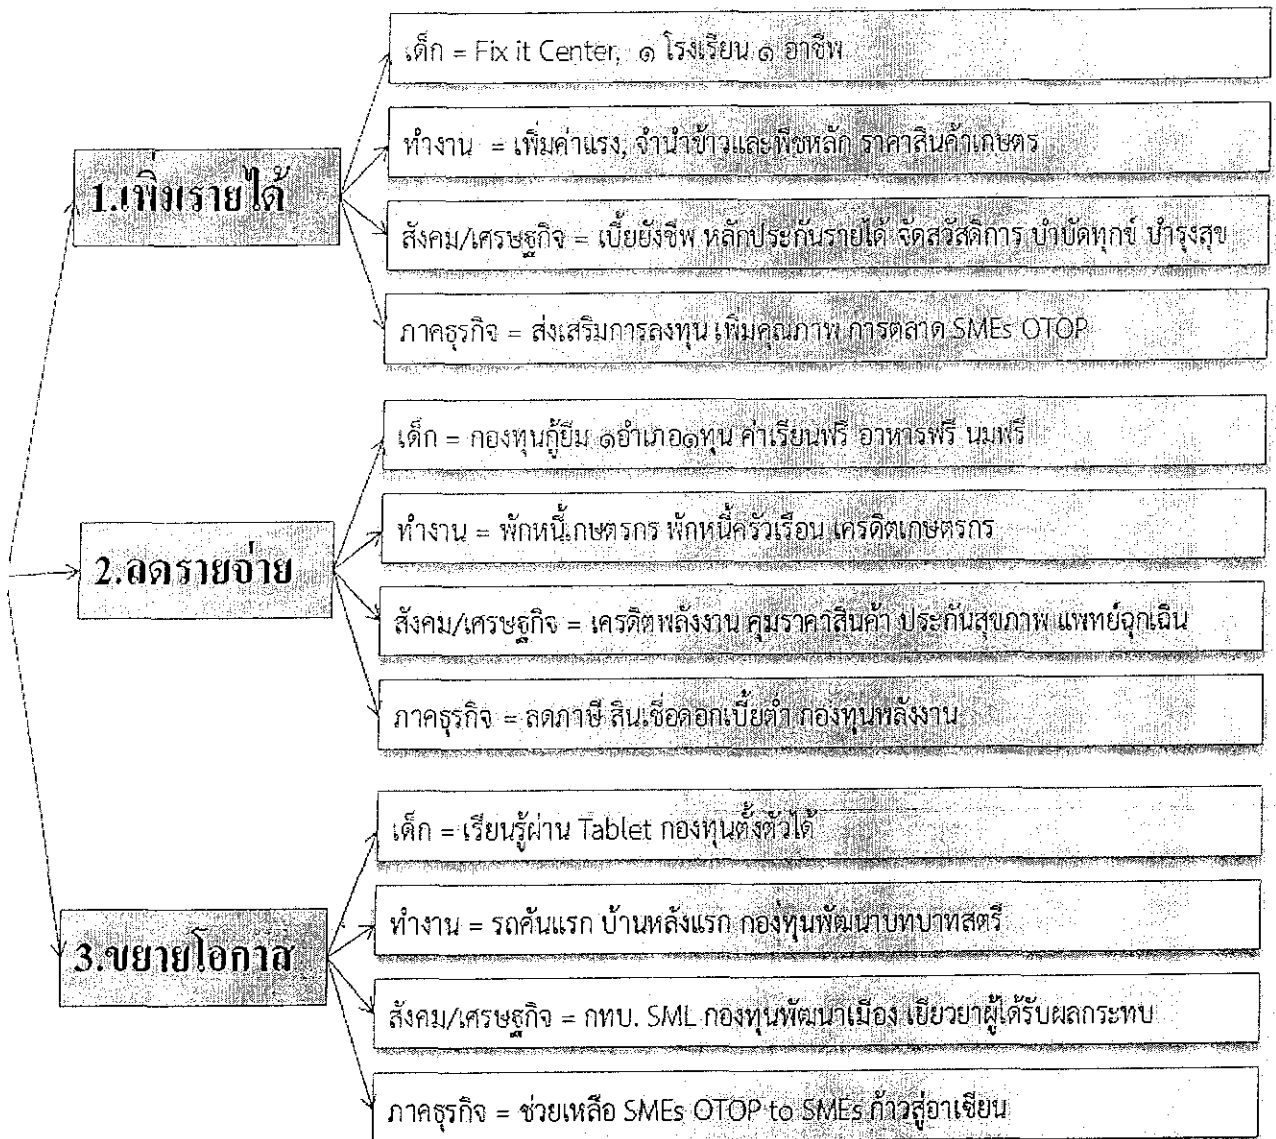 1.เพิ่มรายได้
เด็ก = Fix it Center, ๑ โรงเรียน ๑ อาชีพ
ทำงาน = เพิ่มค่าแรง, จำนำข้าวและพืชหลัก ราคาสินค้าเกษตร
สังคม/เศรษฐกิจ = เบี้ยยังชีพ หลักประกันรายได้ จัดสวัสดิการ บำบัดทุกข์ บำรุงสุข
ภาคธุรกิจ = ส่งเสริมการลงทุน เพิ่มคุณภาพ การตลาด SMEs OTOP
2.ลดรายจ่าย
เด็ก = กองทุนกู้ยืม ๑อำเภอ๑ทุน ค่าเรียนฟรี อาหารฟรี นมฟรี
ทำงาน = พักหนี้เกษตรกร พักหนี้ครัวเรือน เครดิตเกษตรกร
สังคม/เศรษฐกิจ = เครดิตพลังงาน คุมราคาสินค้า ประกันสุขภาพ แพทย์ฉุกเฉิน
ภาคธุรกิจ = ลดภาษี สินเชื่อดอกเบี้ยต่ำ กองทุนพลังงาน
3.ขยายโอกาส
เด็ก = เรียนรู้ผ่าน Tablet กองทุนตั้งตัวได้
ทำงาน = รถคันแรก บ้านหลังแรก กองทุนพัฒนาบทบาทสตรี
สังคม/เศรษฐกิจ = กทบ. SML กองทุนพัฒนาเมือง เยียวยาผู้ได้รับผลกระทบ
ภาคธุรกิจ = ช่วยเหลือ SMEs OTOP to SMEs ก้าวสู่อาเซียน